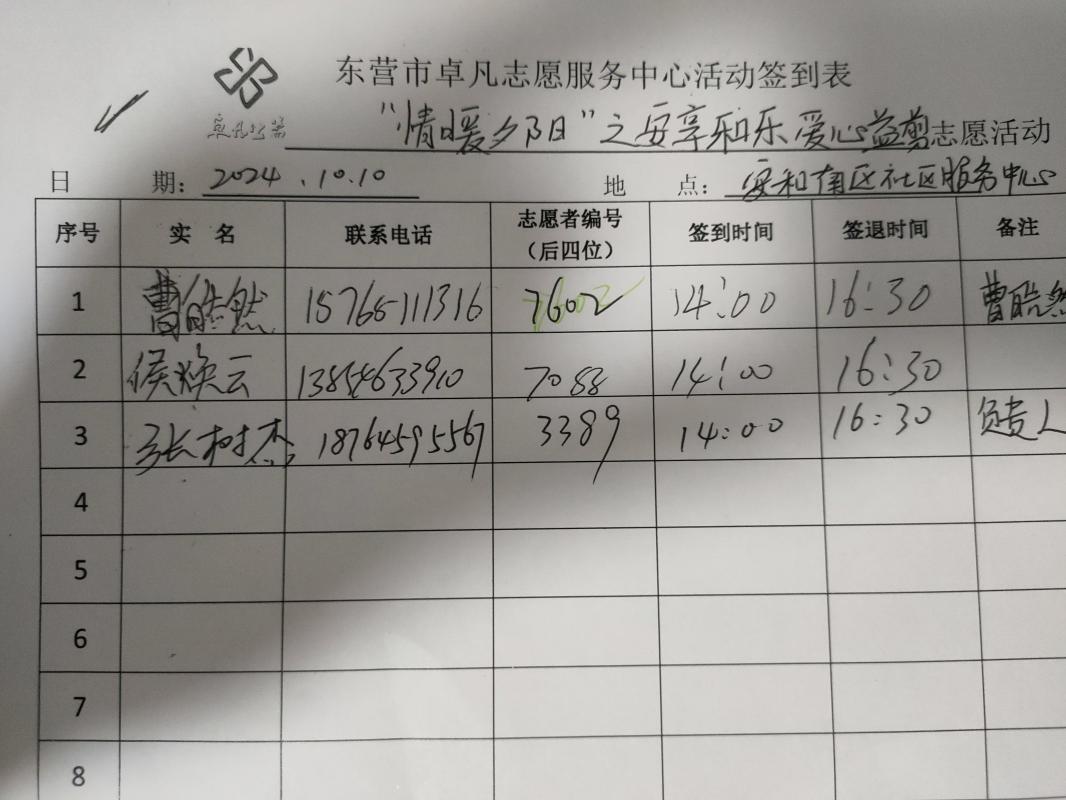 东营市卓凡志愿服务中心活动签到表
卓凡公益
“情暖夕阳”之安享和乐爱心益剪志愿活动
日 期: 2024.10.10 地 点: 安和南区社区服务中心
序号 实 名 联系电话 志愿者编号（后四位） 签到时间 签退时间 备注
1 曹皓然 15765111316 7602 14:00 16:30 曹皓然
2 侯焕云 13854633910 7088 14:00 16:30
3 张树杰 18764595567 3389 14:00 16:30 负责人
4
5
6
7
8